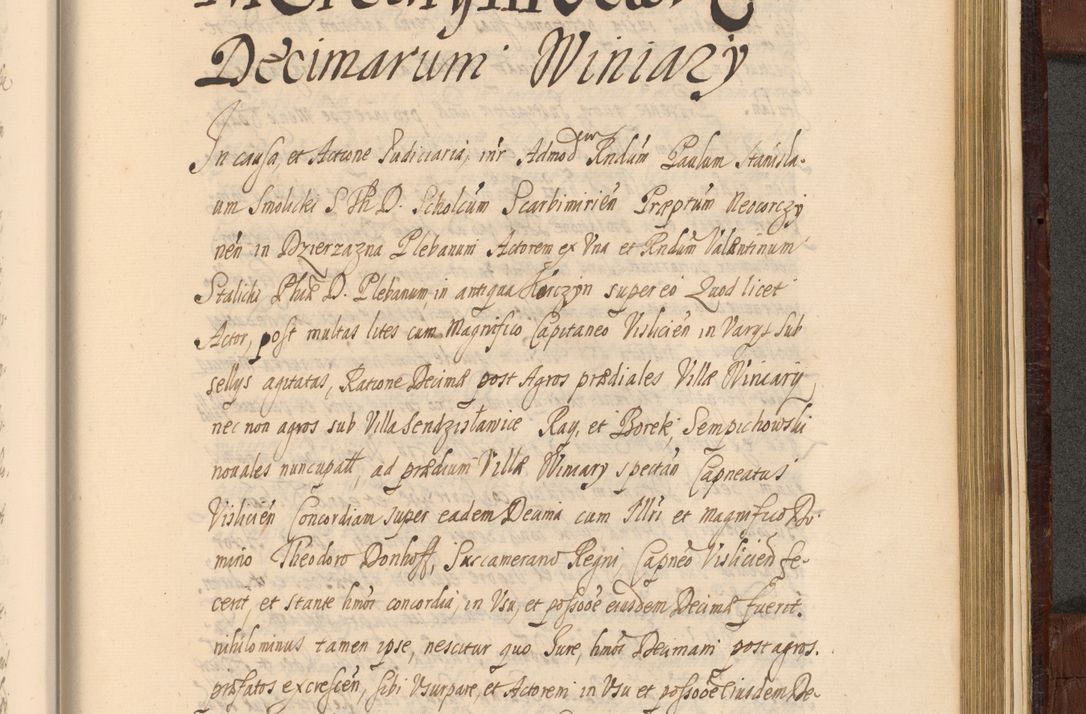 Decimarum Winiary
In causa et Actione Judiciaria, intr Admod Rndum Paulum Stanisla-
um Smolicki S. Th. D. Scholcum Scarbimirien Præptum Neocorczy
nen in Dzierzazna Plebanum Actorem ex Una et Rndum Valentinum
Stalicki Phæ D. Plebanum in antiqua Korczyn super eo Quod licet
Actor, post multas lites cum Magnifico Capitaneo Vislicien in Varys Sub
sellys agitatas, Ratione Decimæ post Agros prædiales Villæ Winiary
nec non agros sub Villa Sendzisławice Ray, et Borek, Sempichowski
novales nuncupatt, ad prædium Villæ Winiary spectan Capneatus
Vislicien Concordiam super eadem Decima cum Illri et Magnifico Do-
mino Theodoro Donhoff, Succamerario Regni, Capneo Vislicien fe-
cerit, et stante hmoi concordia, in Usu, et possooe eiusdem Decimæ fuerit.
nihilominus tamen ipse, nescitur quo Jure, hmoi Decimam post agros.
præfatos excrescen, sibi Usurpare, et Actorem in Usu et possooe Eiusdem De-